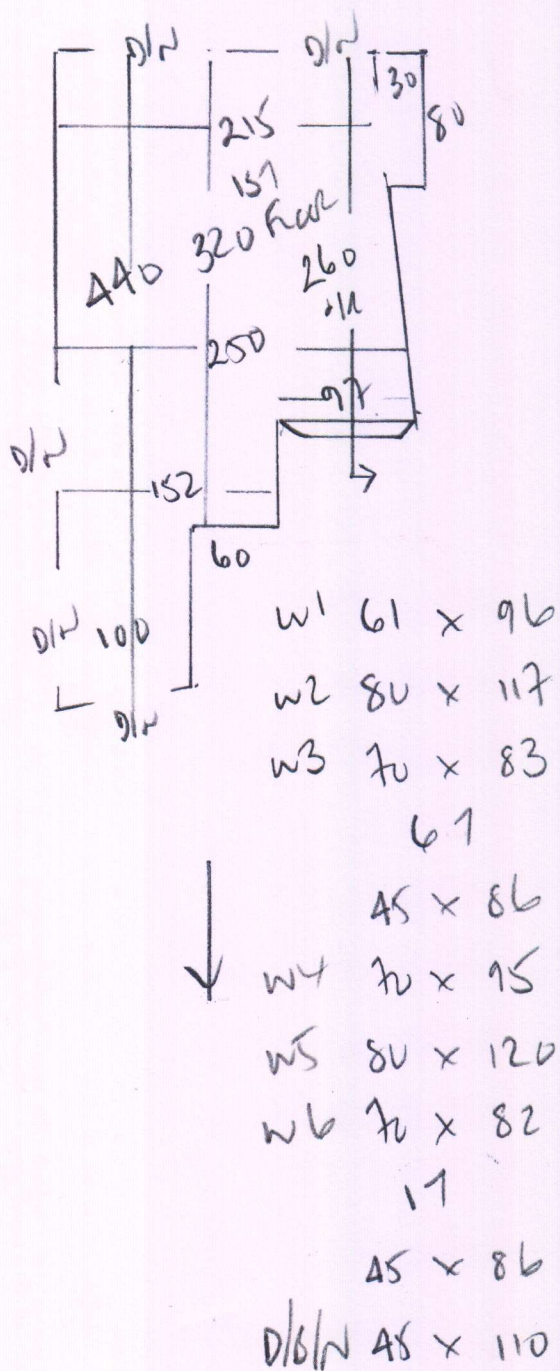 D/N D/N
30
215 80
157
320 FLUR
440 260
.11
250
97
D/N
152
60
D/N 100
D/N
W1 61 x 96
W2 80 x 117
W3 70 x 83
67
45 x 86
W4 70 x 95
W5 80 x 120
W6 70 x 82
17
45 x 86
D/B/N 48 x 110